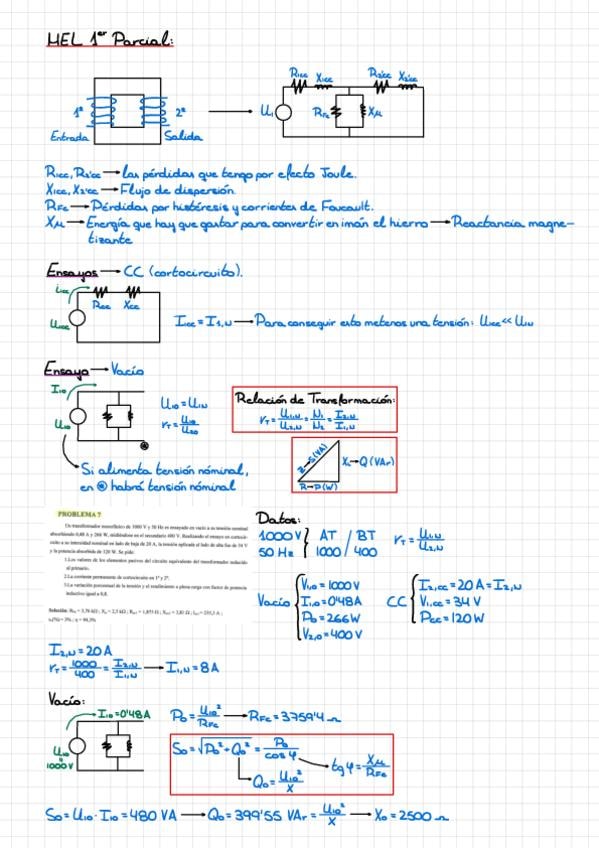 MEL 1er Parcial:
R1cc X1cc R2'cc X2'cc
1º 2º U1 RFe Xμ
Entrada Salida
R1cc, R2'cc → las pérdidas que tengo por efecto Joule.
X1cc, X2'cc → Flujo de dispersión
RFe → Pérdidas por histéresis y corrientes de Foucault.
Xμ → Energía que hay que gastar para convertir en imán el hierro → Reactancia magne-
tizante
Ensayos → CC (cortocircuito).
i1cc
Rcc Xcc
U1cc
I1cc = I1,N → Para conseguir esto metemos una tensión: U1cc << U1N
Ensayo → Vacío
I10
U10
U10 = U1N
rT = U10/U20
Relación de Transformación:
rT = U1,N/U2,N = N1/N2 = I2,N/I1,N
Si alimenta tensión nóminal,
en ⊛ habrá tensión nóminal
Z→S(VA) X→Q(VAr)
R→P(W)
PROBLEMA 7
Un transformador monofásico de 1000 V y 50 Hz es ensayado en vacío a su tensión nominal
absorbiendo 0,48 A y 266 W, midiéndose en el secundario 400 V. Realizando el ensayo en cortocir-
cuito a su intensidad nominal en lado de baja de 20 A, la tensión aplicada al lado de alta fue de 34 V
y la potencia absorbida de 120 W. Se pide:
1.Los valores de los elementos pasivos del circuito equivalente del transformador reducido
al primario.
2.La corriente permanente de cortocircuito en 1º y 2º.
3.La variación porcentual de la tensión y el rendimiento a plena carga con factor de potencia
inductivo igual a 0,8.
Datos:
1000 V
50 Hz
AT / BT
1000 / 400
rT = U1,N/U2,N
Vacío
V1,0 = 1000 V
I1,0 = 0'48 A
P0 = 266 W
V2,0 = 400 V
CC
I2,cc = 20 A = I2,N
V1,cc = 34 V
Pcc = 120 W
I2,N = 20 A
rT = 1000/400 = I2,N/I1,N → I1,N = 8 A
Vacío:
I10 = 0'48 A
U10
1000 V
P0 = U10²/RFe → RFe = 3759'4 Ω
S0 = √P0² + Q0² = P0/cos φ
tg φ = Xμ/RFe
Q0 = U10²/X
S0 = U10 · I10 = 480 VA → Q0 = 399'55 VAr = U10²/X → X0 = 2500 Ω